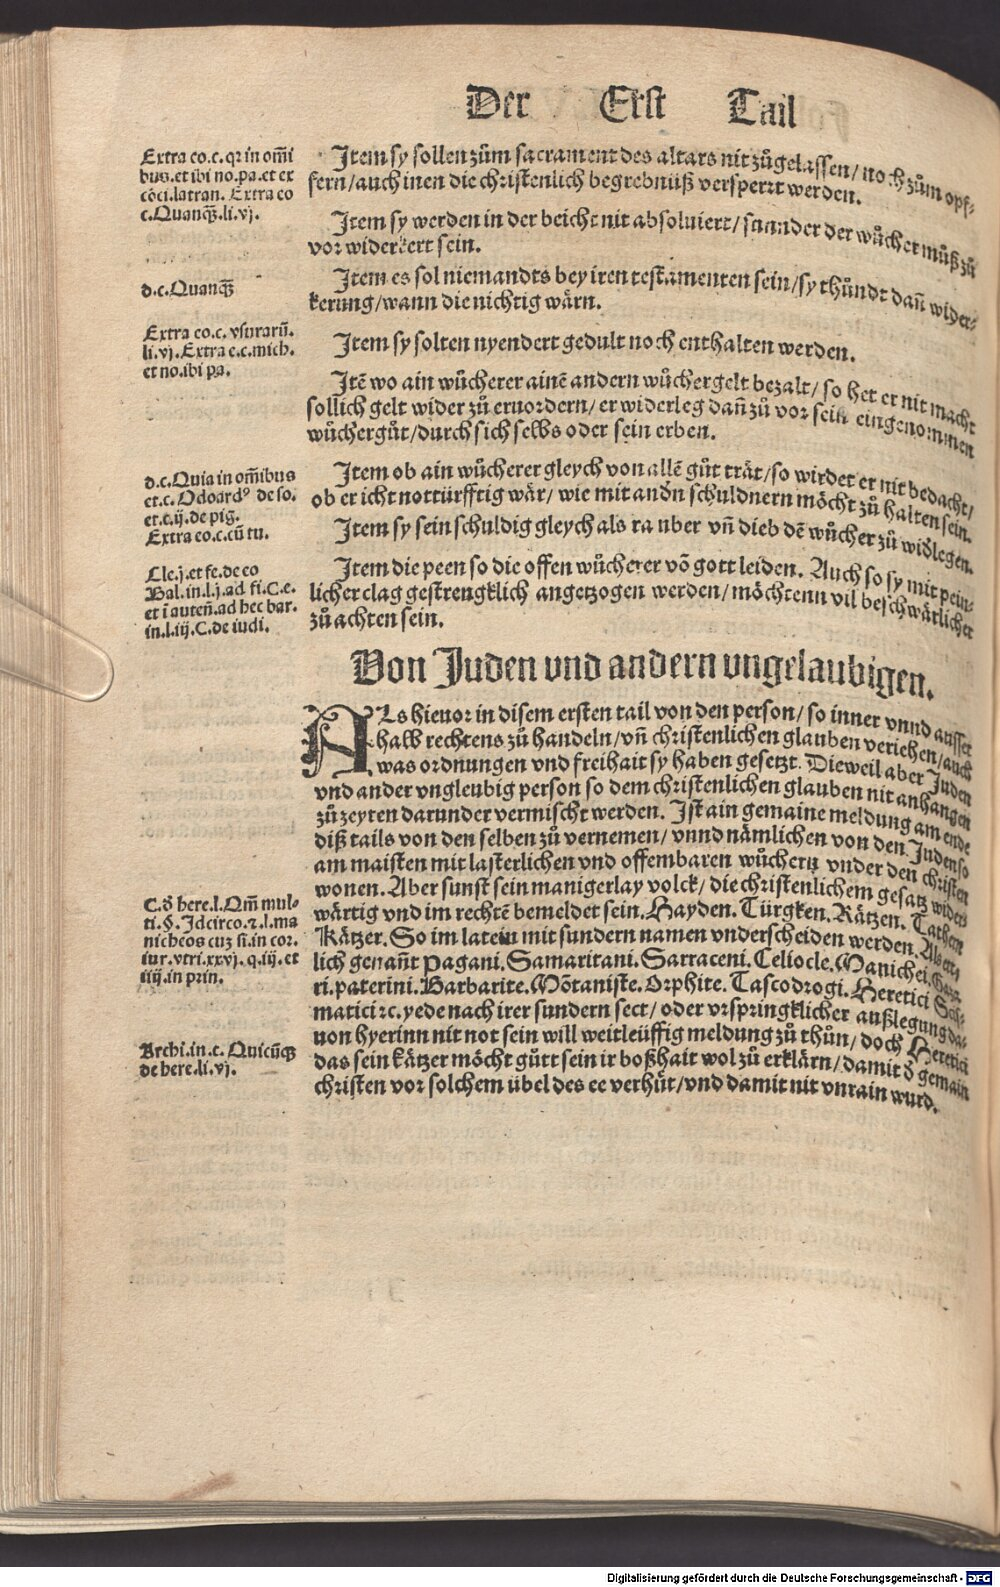 Der Erst Tail
Extra co.c. qꝛ in om̄i
bus.et ibi no.pa.et ex
cōci.latran. Extra co
c.Quanqꝫ.li.vj.
Item sy sollen zům sacrament des altars nit zůgelassen/ noch zům opf⸗
fern/auch inen die christenlich begrebnüß versperrt werden.
Item sy werden in der beicht nit absoluiert/ sunder der wůcher můß zů
vor widerkert sein.
d.c.Quanqꝫ
Item es sol niemandts bey iren testamenten sein/sy thůndt dañ wider⸗
kerung/wann die nichtig wärn.
Extra co.c. vsurarū.
li.vj. Extra e.c.mich.
et no.ibi pa.
Item sy solten nyendert gedult noch enthalten werden.
Itē wo ain wůcherer ainē andern wůchergelt bezalt/ so het er nit macht
sollich gelt wider zů eruordern/ er widerleg dañ zů vor sein eingenommen
wůchergůt/durch sich selbs oder sein erben.
d.c.Quia in om̄ibus
et.c. Odoardꝰ de so.
et.c.ij.de pig.
Extra eo.c.cū tu.
Item ob ain wůcherer gleych von allē gůt trät/so wirdet er nit bedacht/
ob er icht nottürfftig wär/ wie mit andn̄ schuldnern möcht zů halten sein.
Item sy sein schuldig gleych als rauber vñ dieb dē wůcher zů widlegen.
Cle.j.et fe.de eo
Bal.in.l.j.ad fi.C.e.
et ī auteñ.ad hec bar.
in.l.iij.C.de iudi.
Item die peen so die offen wůcherer vō gott leiden. Auch so sy mit pein⸗
licher clag gestrengklich angetzogen werden/ möchtenn vil beschwärlicher
zů achten sein.
Von Juden vnd andern vngelaubigen.
ALs hieuor in disem ersten tail von den person/ so inner vnnd ausser
halb rechtens zů handeln/ vñ christenlichen glauben veriehen/ auch
was ordnungen vnd freihait sy haben gesetzt. Dieweil aber Juden
vnd ander vngleubig person so dem christenlichen glauben nit anhangen
zů zeyten darunder vermischt werden. Ist ain gemaine meldung am ende
diß tails von den selben zů vernemen/ vnnd nämlichen von den Juden so
am maisten mit lasterlichen vnd offembaren wůchern vnder den christen
wonen. Aber sunst sein manigerlay volck/ die christenlichem gesatz wider⸗
C.ð here.l.Qm̄ mul⸗
ti.§. Idcirco.ꝛ.l.ma
nicheos cuz si.in cor.
iur.vtri.xxvj.q.iij.et
iiij.in prin.
wärtig vnd im rechtē bemeldet sein. Hayden. Türgken. Rätzen. Tathern
Kätzer. So im latein mit sundern namen vnderscheiden werden.
lich genañt Pagani. Samaritani. Sarraceni. Celiocle. Manichei.
ri.paterini. Barbarite. Mōtaniste. Orphite. Tascodrogi. Heretici
matici ꝛc. yede nach irer sundern sect/ oder vrspringklicher außlegung da⸗
Archi.in.c. Quicūqꝫ
de here.li.vj.
uon hyerinn nit not sein will weitleüffig meldung zů thůn/ doch Heretici
das sein kätzer möcht gůtt sein ir boßhait wol zů erklärn/ damit ð gemain
christen vor solchem übel des ee verhůt/vnd damit nit vnrain wurd.
Digitalisierung gefördert durch die Deutsche Forschungsgemeinschaft - DFG